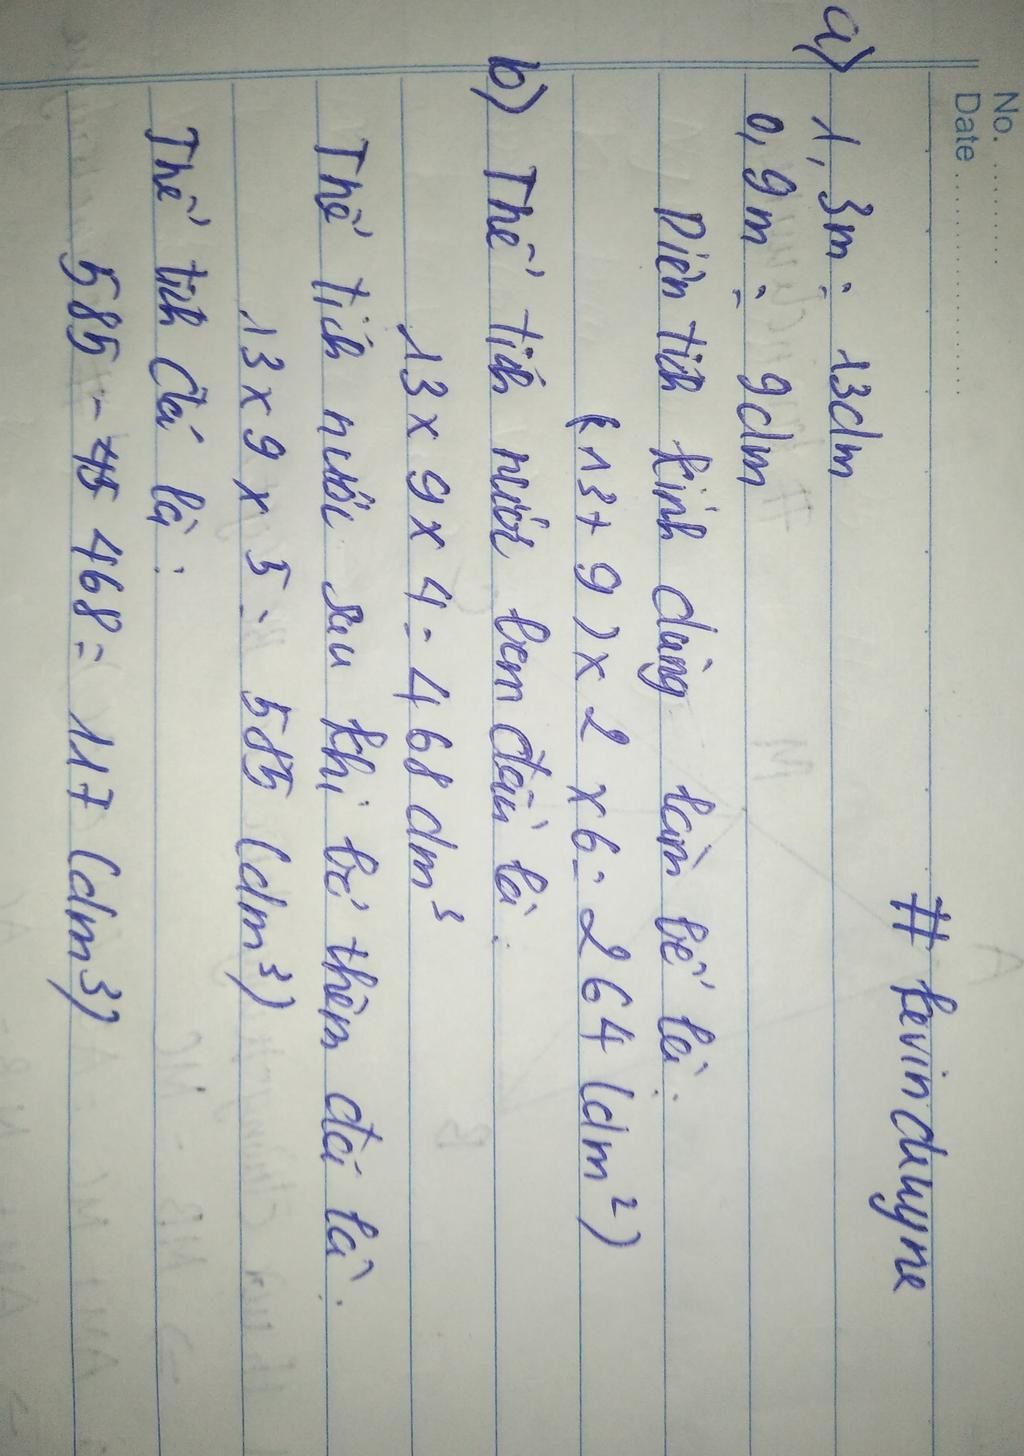 No. ............
Date ........................
# kevinduyne
a) 1,3m = 13dm
0,9m = 9dm
Diện tích kính dùng làm bể là:
(13+9)x2x6=264(dm²)
b) Thể tích nước ban đầu là:
13x9x4=468dm³
Thể tích nước sau khi bỏ thêm đá là:
13x9x5=585(dm³)
Thể tích đá là:
585-468=117(dm³)